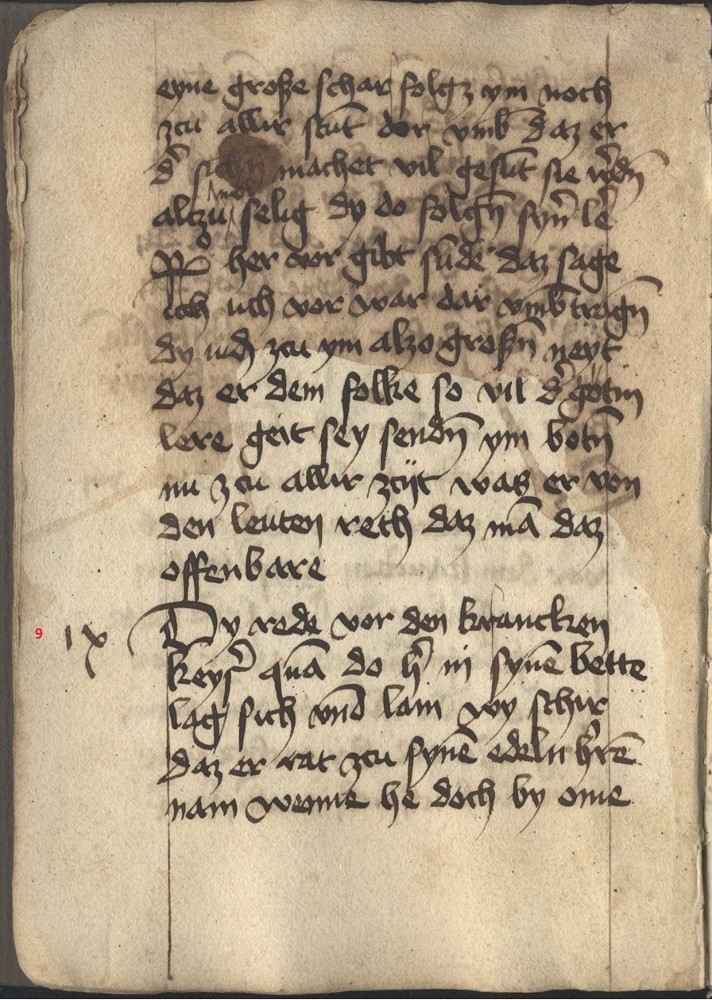 eyne große schar folgz ym noch
zcu allir stūt dor vmb daz er
machet vil gesūt sie w̄dn̄
altzu selig dy do folgn̄ syn̄ lē
her vor gibt sūde daz sage
ich uch vor war dar vmb tragn̄
dy iudn̄ zcu ym alzo großn̄ neyt
daz er dem folke so vil d̄ gotin
lere geit sey sendn̄ ym botn̄
nu zcu allir zcijt was er von
den leuten reth daz mā daz
offenbare
9 ix Dy rede vor den krancken
keys̄ quā do h̄ in synē bette
lag sich vnd lam wy schir
daz er rat zcu synē edeln h̄rē
nam wenne he doch by ome